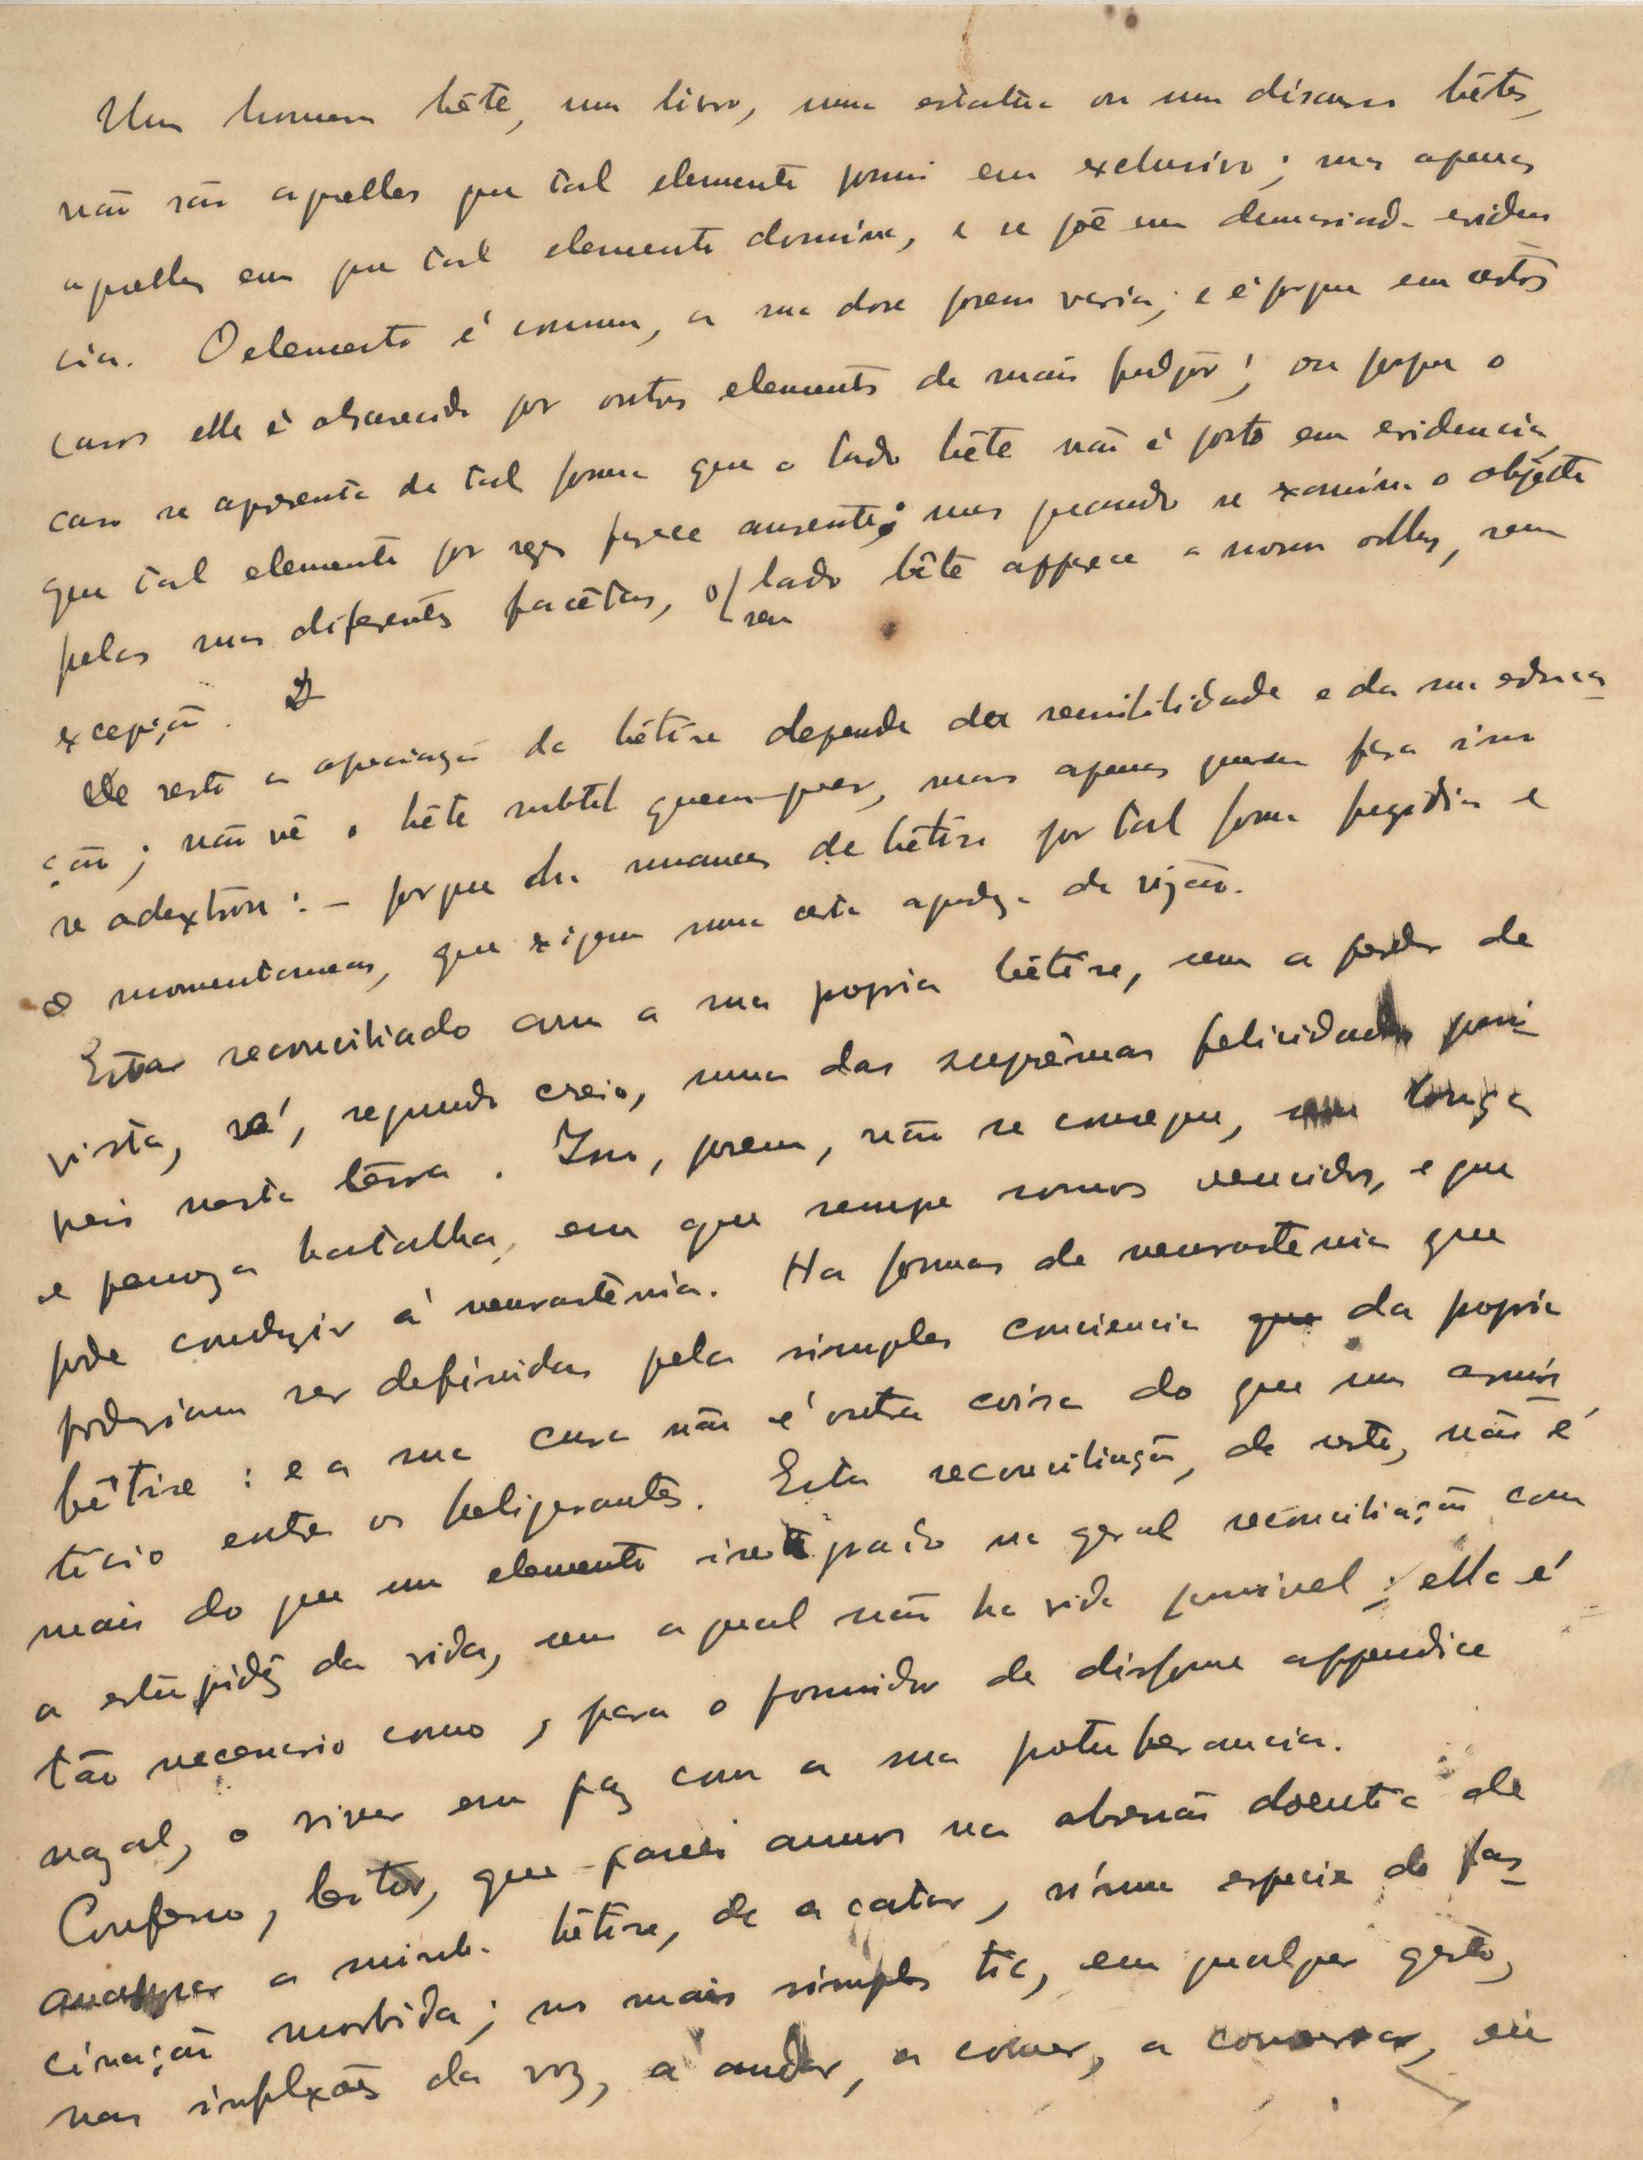 Um homem bête, um livro, uma estatua ou um discurso bêtes,
não são aquelles que tal elemento possui em exclusivo; mas apenas
aquelles em que tal elemento domina, e se põe em demasiada eviden
cia. O elemento é comum, a sua dose porem varia; e é porque em certos
casos elle é obscurecido por outros elementos de mais fulgor; ou porque o
caso se apresenta de tal forma que o lado bête não é posto em evidencia,
que tal elemento por vezes parece ausente; mas quando se examina o objecto
pelas suas diferentes facêtas, o seu lado bête apparece a nossos olhos, sem
excepção.
De resto a apreciação da bêtise depende da sensibilidade e da sua educa-
ção; não vê o bête subtil quem quer, mas apenas quem para isso
se adextrou: – porque ha nuances de bêtise por tal forma fugidias e
momentaneas, que exigem uma certa agudeza de visão.
Estar reconciliado com a sua propria bêtise, sem a perder de
vista, é, segundo creio, uma das suprêmas felicidades possi-
veis nesta terra. Isso, porem, não se consegue, sem longa
e penoza batalha, em que sempre somos vencidos, e que
pode conduzir á neurastênia. Ha formas de neurastenia que
poderiam ser definidas pela simples conciencia que da propria
bêtise: e a sua cura não é outra coisa do que um armis-
ticio entre os beligerantes. Esta reconciliação, de resto, não é
mais do que um elemento integrado na geral reconciliação com
a estupidêz da vida, sem a qual não ha vida possivel; ella é
tão necessario como, para o possuidor de disforme appendice
nazal, o viver em paz com a sua protuberancia.
Confesso, leitor, que passei annos na obsessão doentia de
analyzar a minha bêtise, de a catar, n'uma especie de fas-
cinação morbida; no mais simples tic, em qualquer gesto,
nas inflexões da voz, a andar, a comer, a conversar, eu